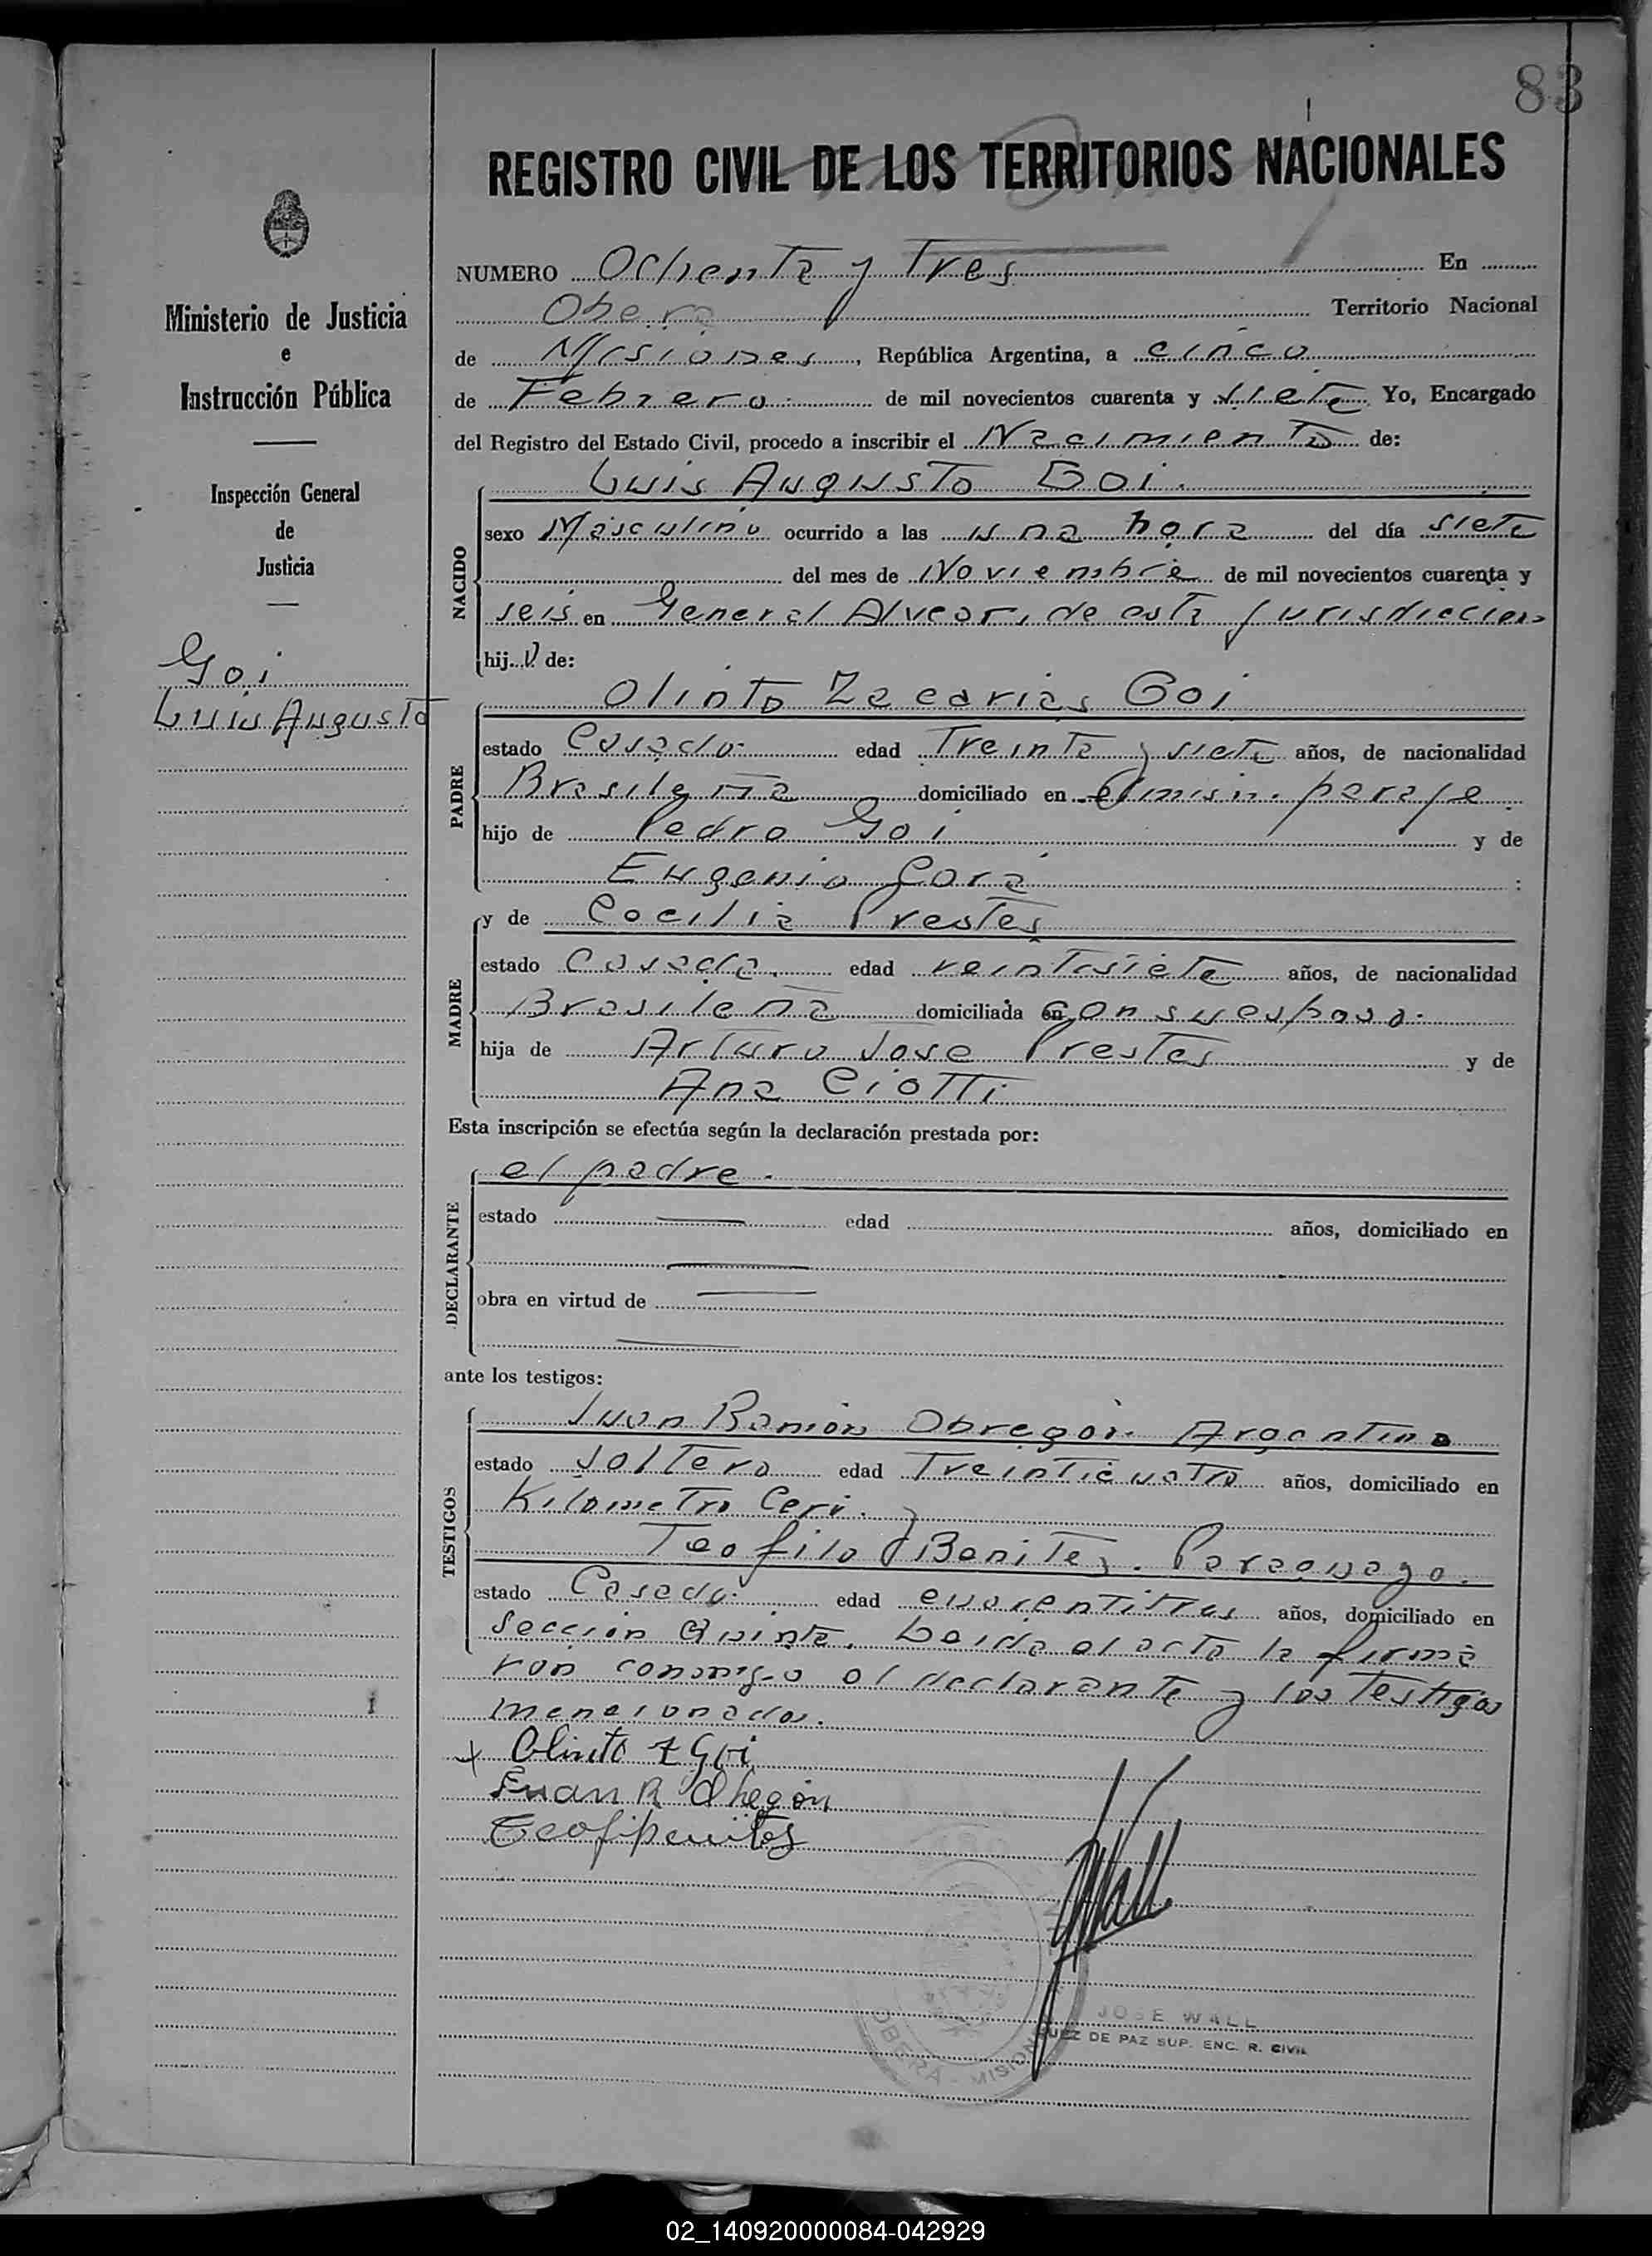 83
REGISTRO CIVIL DE LOS TERRITORIOS NACIONALES
NUMERO Ochenta y Tres En
Obera Territorio Nacional
de Misiones, República Argentina, a cinco
de Febrero de mil novecientos cuarenta y siete Yo, Encargado
del Registro del Estado Civil, procedo a inscribir el Nacimiento de:
Luis Augusto Goi.
NACIDO
sexo Masculino ocurrido a las una hora del día siete
del mes de Noviembre de mil novecientos cuarenta y
seis en General Alvear, de esta jurisdiccion
hijo de:
Olinto Zacarias Goi
PADRE
estado Casado. edad Treinta y siete años, de nacionalidad
Brasileña domiciliado en el mism. paraje.
hijo de Pedro Goi y de
Eugenia :
y de Cecilia Prestes
MADRE
estado Casada. edad veintisiete años, de nacionalidad
Brasileña domiciliada en con su esposo.
hija de Arturo Jose Prestes y de
Ana Ciotti
Esta inscripción se efectúa según la declaración prestada por:
el padre.
DECLARANTE
estado edad años, domiciliado en
obra en virtud de
ante los testigos:
Juan Ramon Obregon. Argentino
TESTIGOS
estado Soltero edad Treinticuatro años, domiciliado en
Kilometro Cero. y
Teofilo Benitez. Paraguayo.
estado Casado. edad cuarentitres años, domiciliado en
Sección Quinta. Leida el acta la firma
ron conmigo el declarante y los Testigos
mencionados.
Olinto Z Goi
Juan R Obregón
JOSE WALL
JUEZ DE PAZ SUP. ENC. R. CIVIL
OBERA - MISIONES
Ministerio de Justicia
e
Instrucción Pública
Inspección General
de
Justicia
Goi
Luis Augusto
02_140920000084-042929